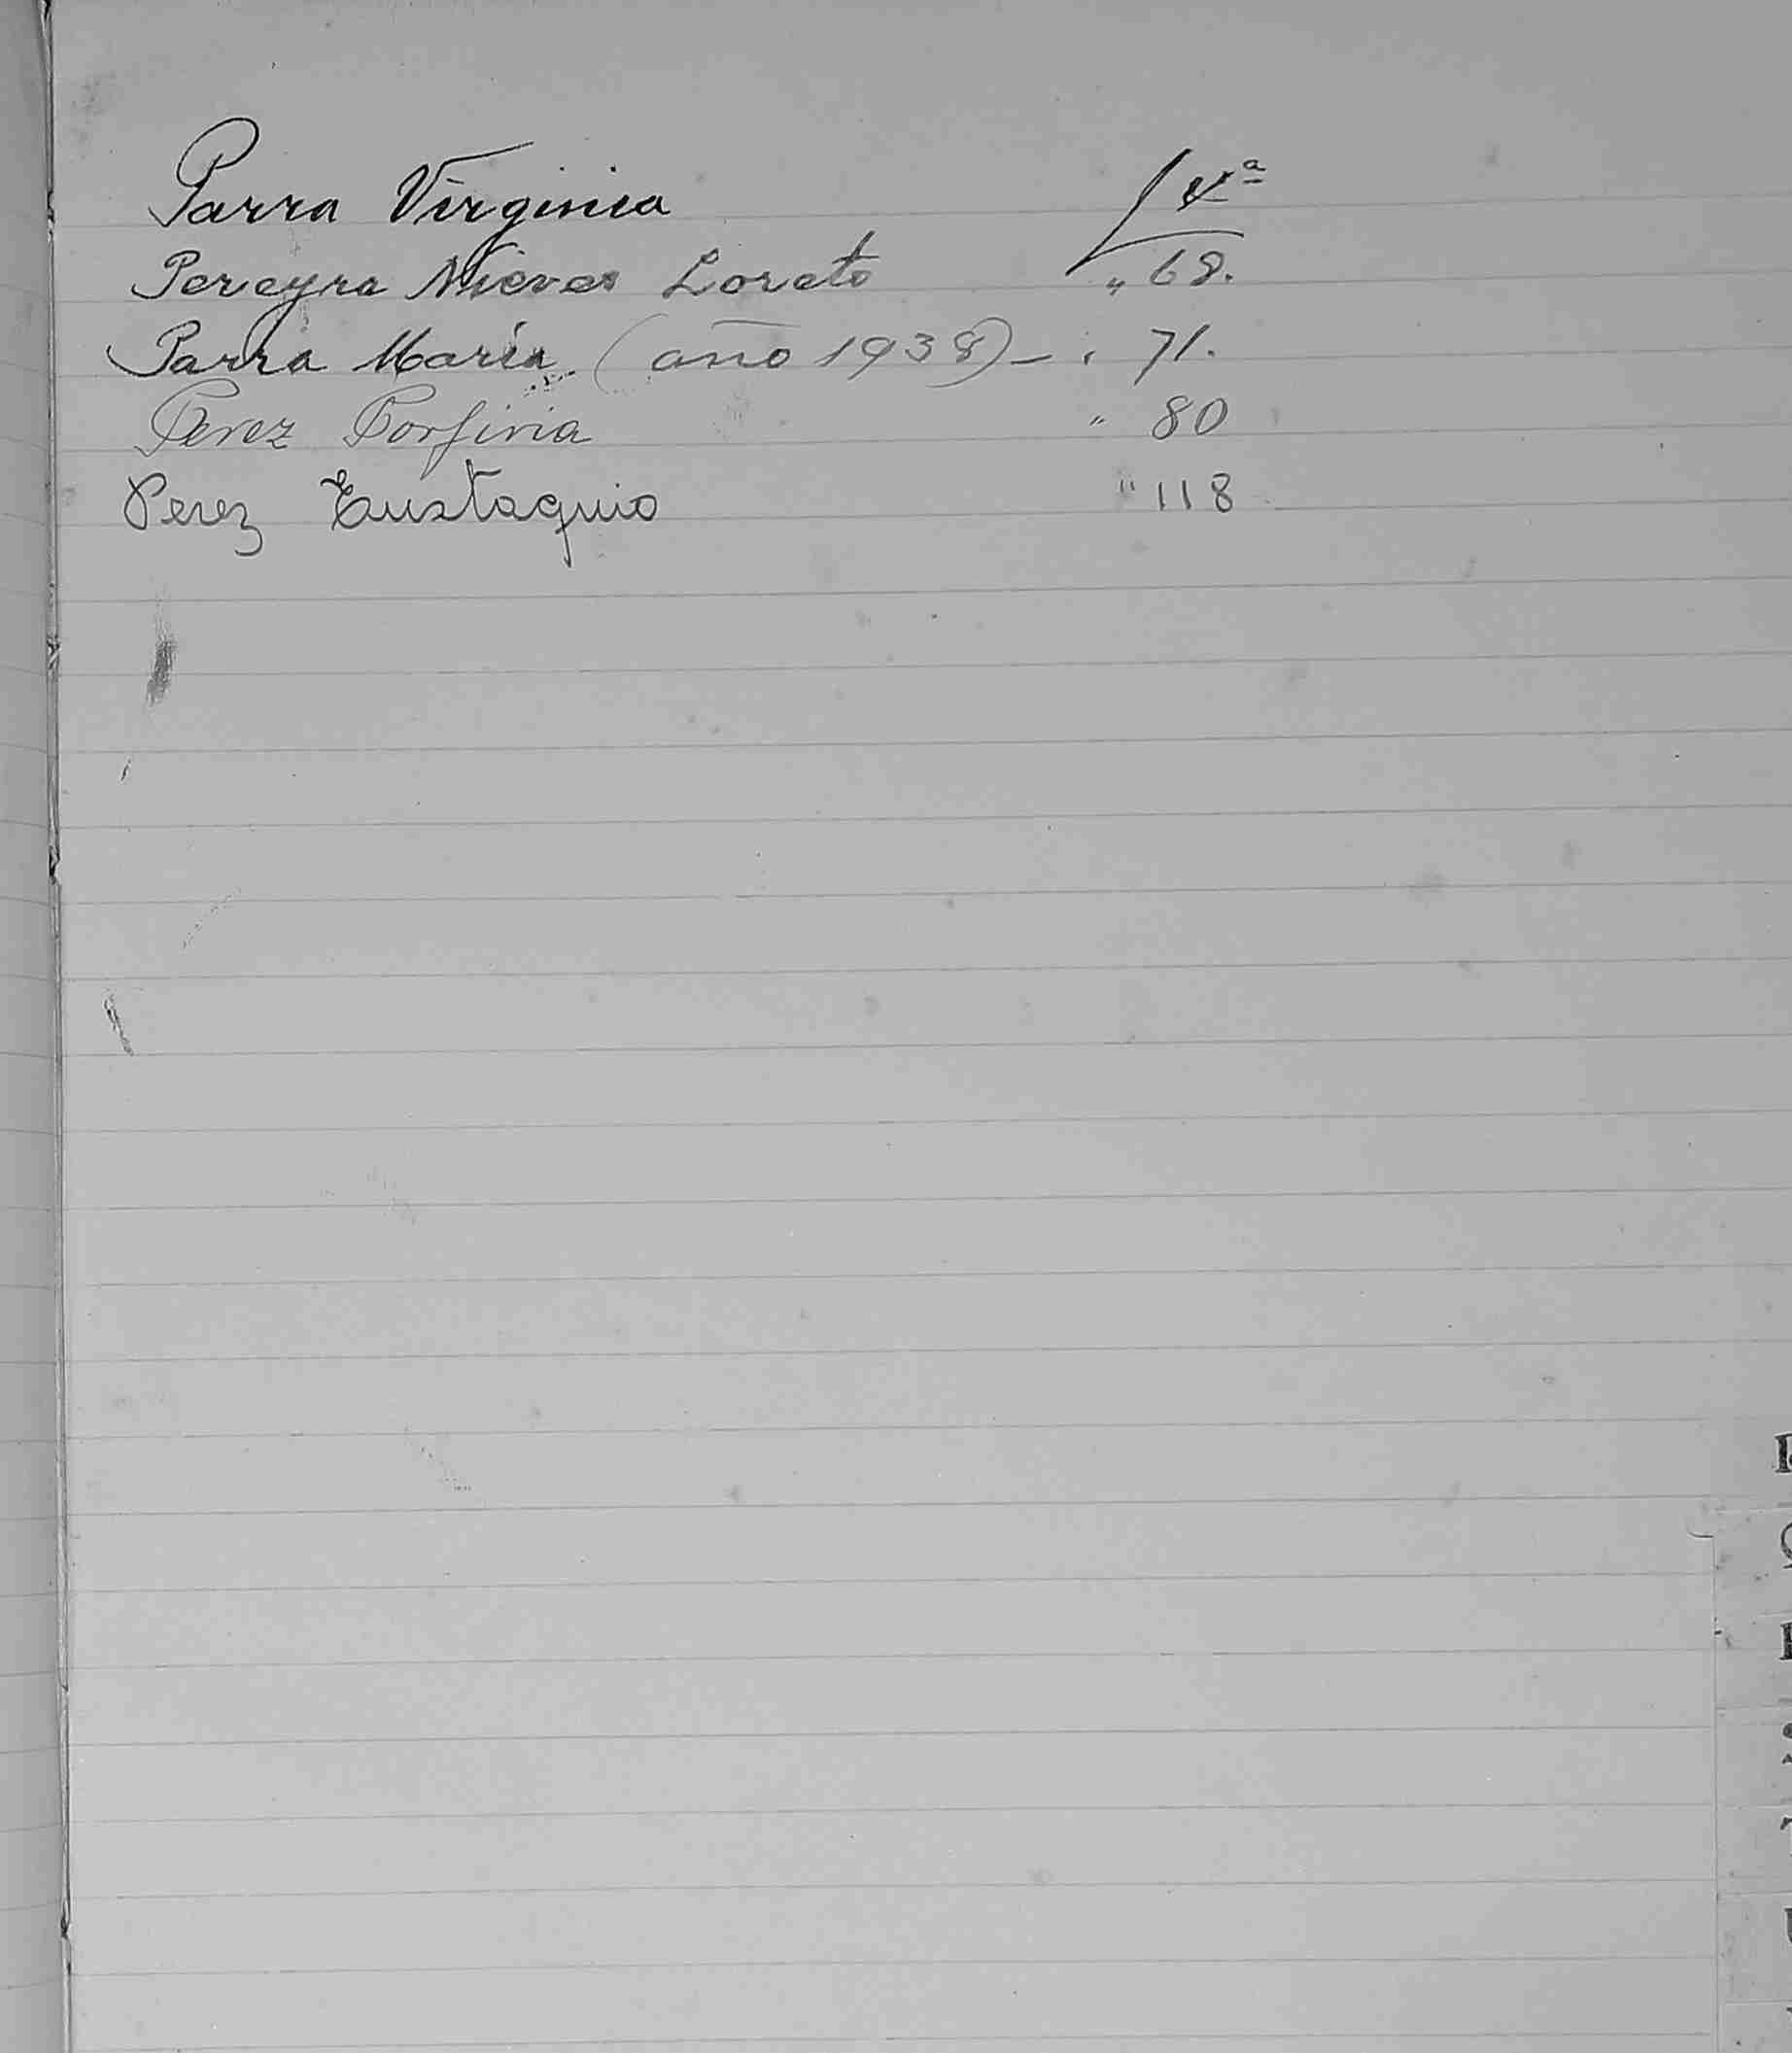 Parra Virginia
Pereyra Nieves Loreto " 68.
Parra María (año 1938) — " 71.
Perez Porfiria " 80
Perez Eustaquio " 118